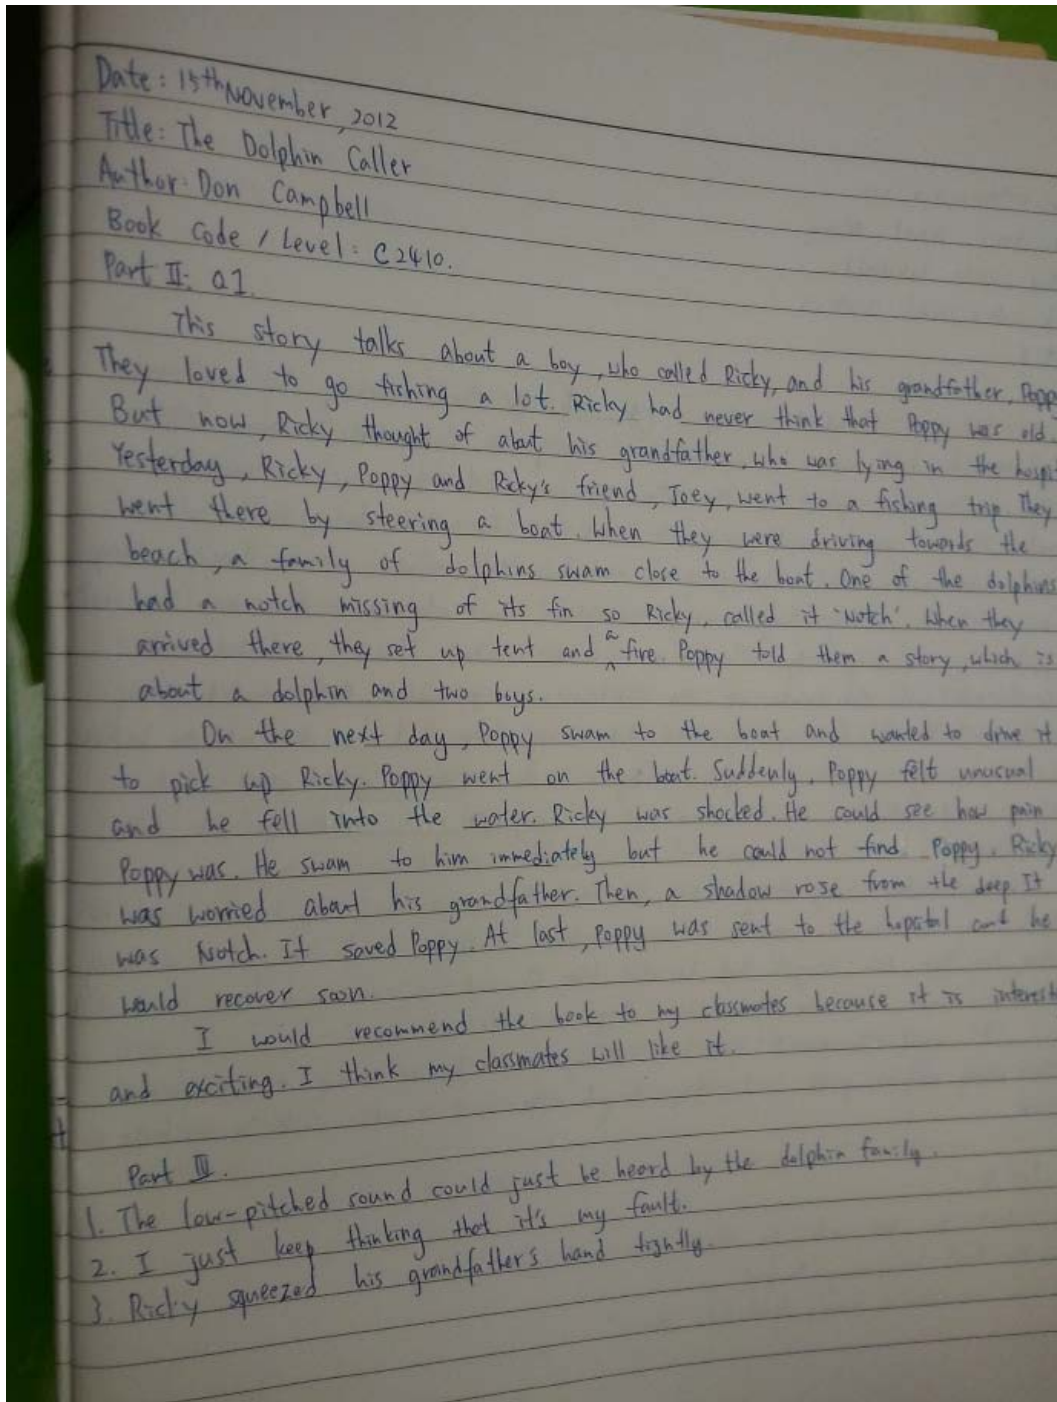 Date: 15th November, 2012
Title: The Dolphin Caller
Author: Don Campbell
Book Code / Level: C2410.
Part II: Q1.
This story talks about a boy, who called Ricky, and his grandfather, Poppy
They loved to go fishing a lot. Ricky had never think that Poppy was old.
But now, Ricky thought of about his grandfather, who was lying in the hospi
Yesterday, Ricky, Poppy and Ricky's friend, Joey, went to a fishing trip. They
went there by steering a boat. When they were driving towards the
beach, a family of dolphins swam close to the boat. One of the dolphins
had a notch missing of its fin so Ricky, called it 'Notch'. When they
arrived there, they set up tent and a fire. Poppy told them a story, which is
about a dolphin and two boys.
On the next day, Poppy swam to the boat and wanted to drive it
to pick up Ricky. Poppy went on the boat. Suddenly, Poppy felt unusual
and he fell into the water. Ricky was shocked. He could see how pain
Poppy was. He swam to him immediately but he could not find Poppy. Ricky
was worried about his grandfather. Then, a shadow rose from the deep. It
was Notch. It saved Poppy. At last, Poppy was sent to the hopstal and he
would recover soon.
I would recommend the book to my classmates because it is interest
and exciting. I think my classmates will like it.
Part III.
1. The low-pitched sound could just be heard by the dolphin family.
2. I just keep thinking that it's my fault.
3. Ricky squeezed his grandfather's hand tightly.